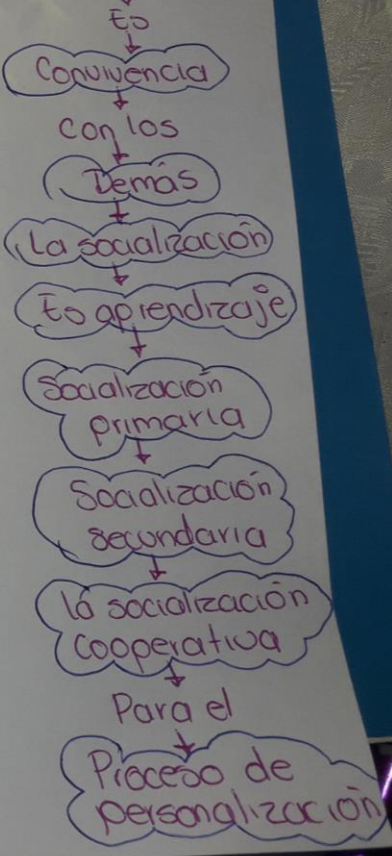 Es
Convivencia
con los
Demás
La socialización
Es aprendizaje
Socialización
primaria
Socialización
secundaria
la socialización
cooperativa
Para el
Proceso de
personalización